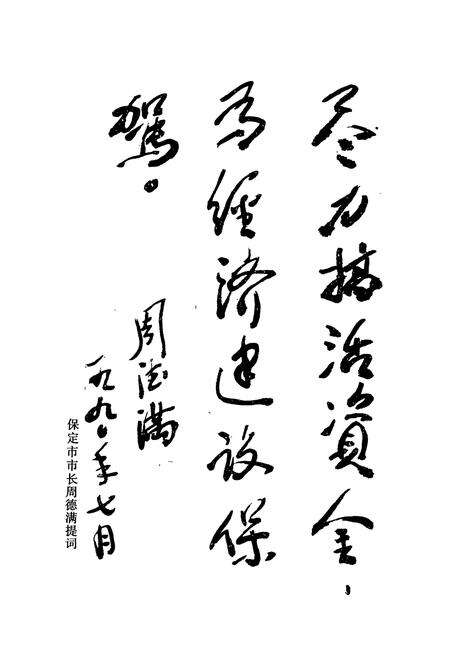 尽力搞活資金，
为經济建设保
駕。
周德满
一九九〇年七月
保定市市长周德满提词